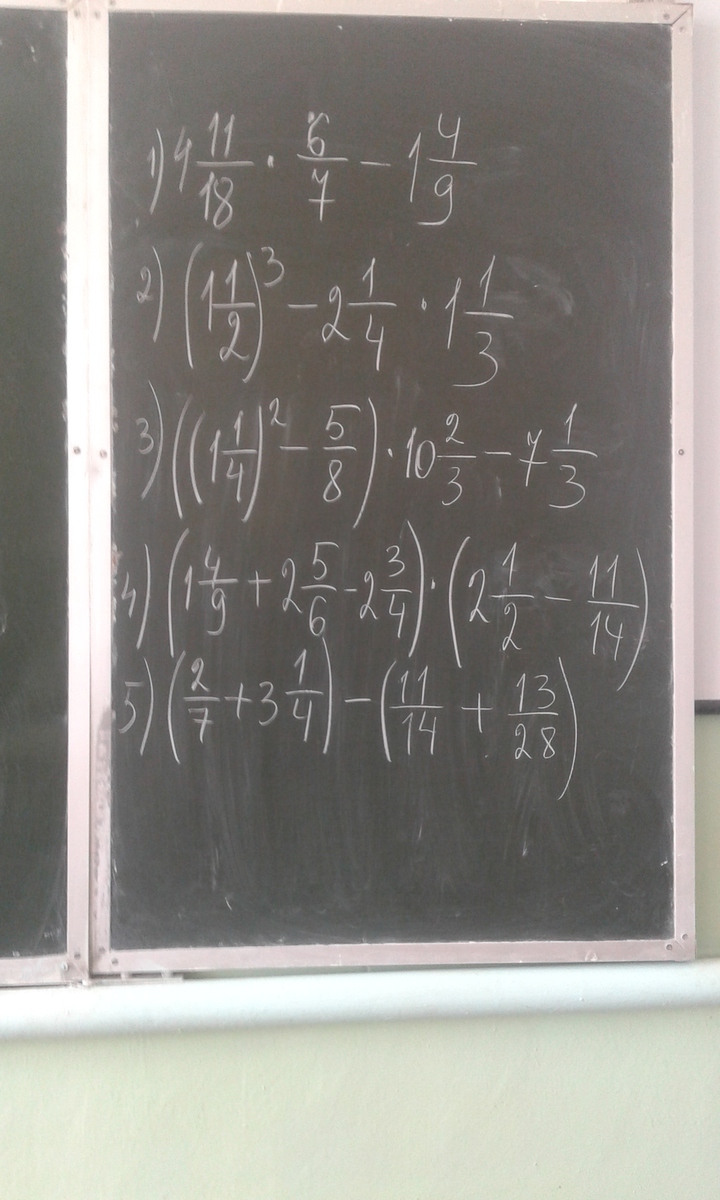 1) 4 11/18 · 6/7 - 1 4/9
2) (1 1/2)³ - 2 1/4 · 1 1/3
3) ((1 1/4)² - 5/8) · 10 2/3 - 7 1/3
4) (1 4/9 + 2 5/6 - 2 3/4) · (2 1/2 - 11/14)
5) (2/7 + 3 1/4) - (11/14 + 13/28)